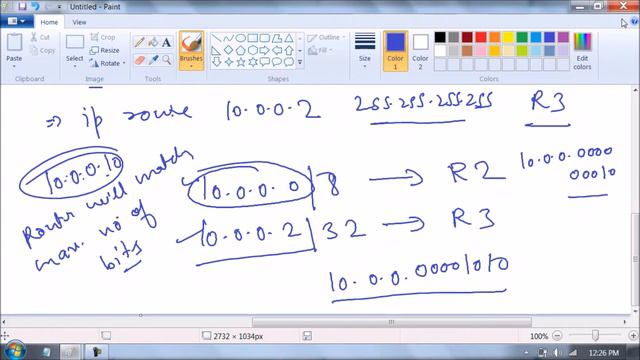 Untitled - Paint
Home View
Paste
Cut
Copy
Clipboard
Select
Crop
Resize
Rotate
Image
Tools
Brushes
Shapes
Outline
Fill
Size
Color 1
Color 2
Edit colors
Colors
⇒ ip route 10.0.0.2 255.255.255.255 R3
10.0.0.10
10.0.0.0 | 8 → R2
10.0.0.0000
00010
Router will match
max. no of
bits
10.0.0.2 | 32 → R3
10.0.0.00001010
2732 × 1034px
100%
12:26 PM